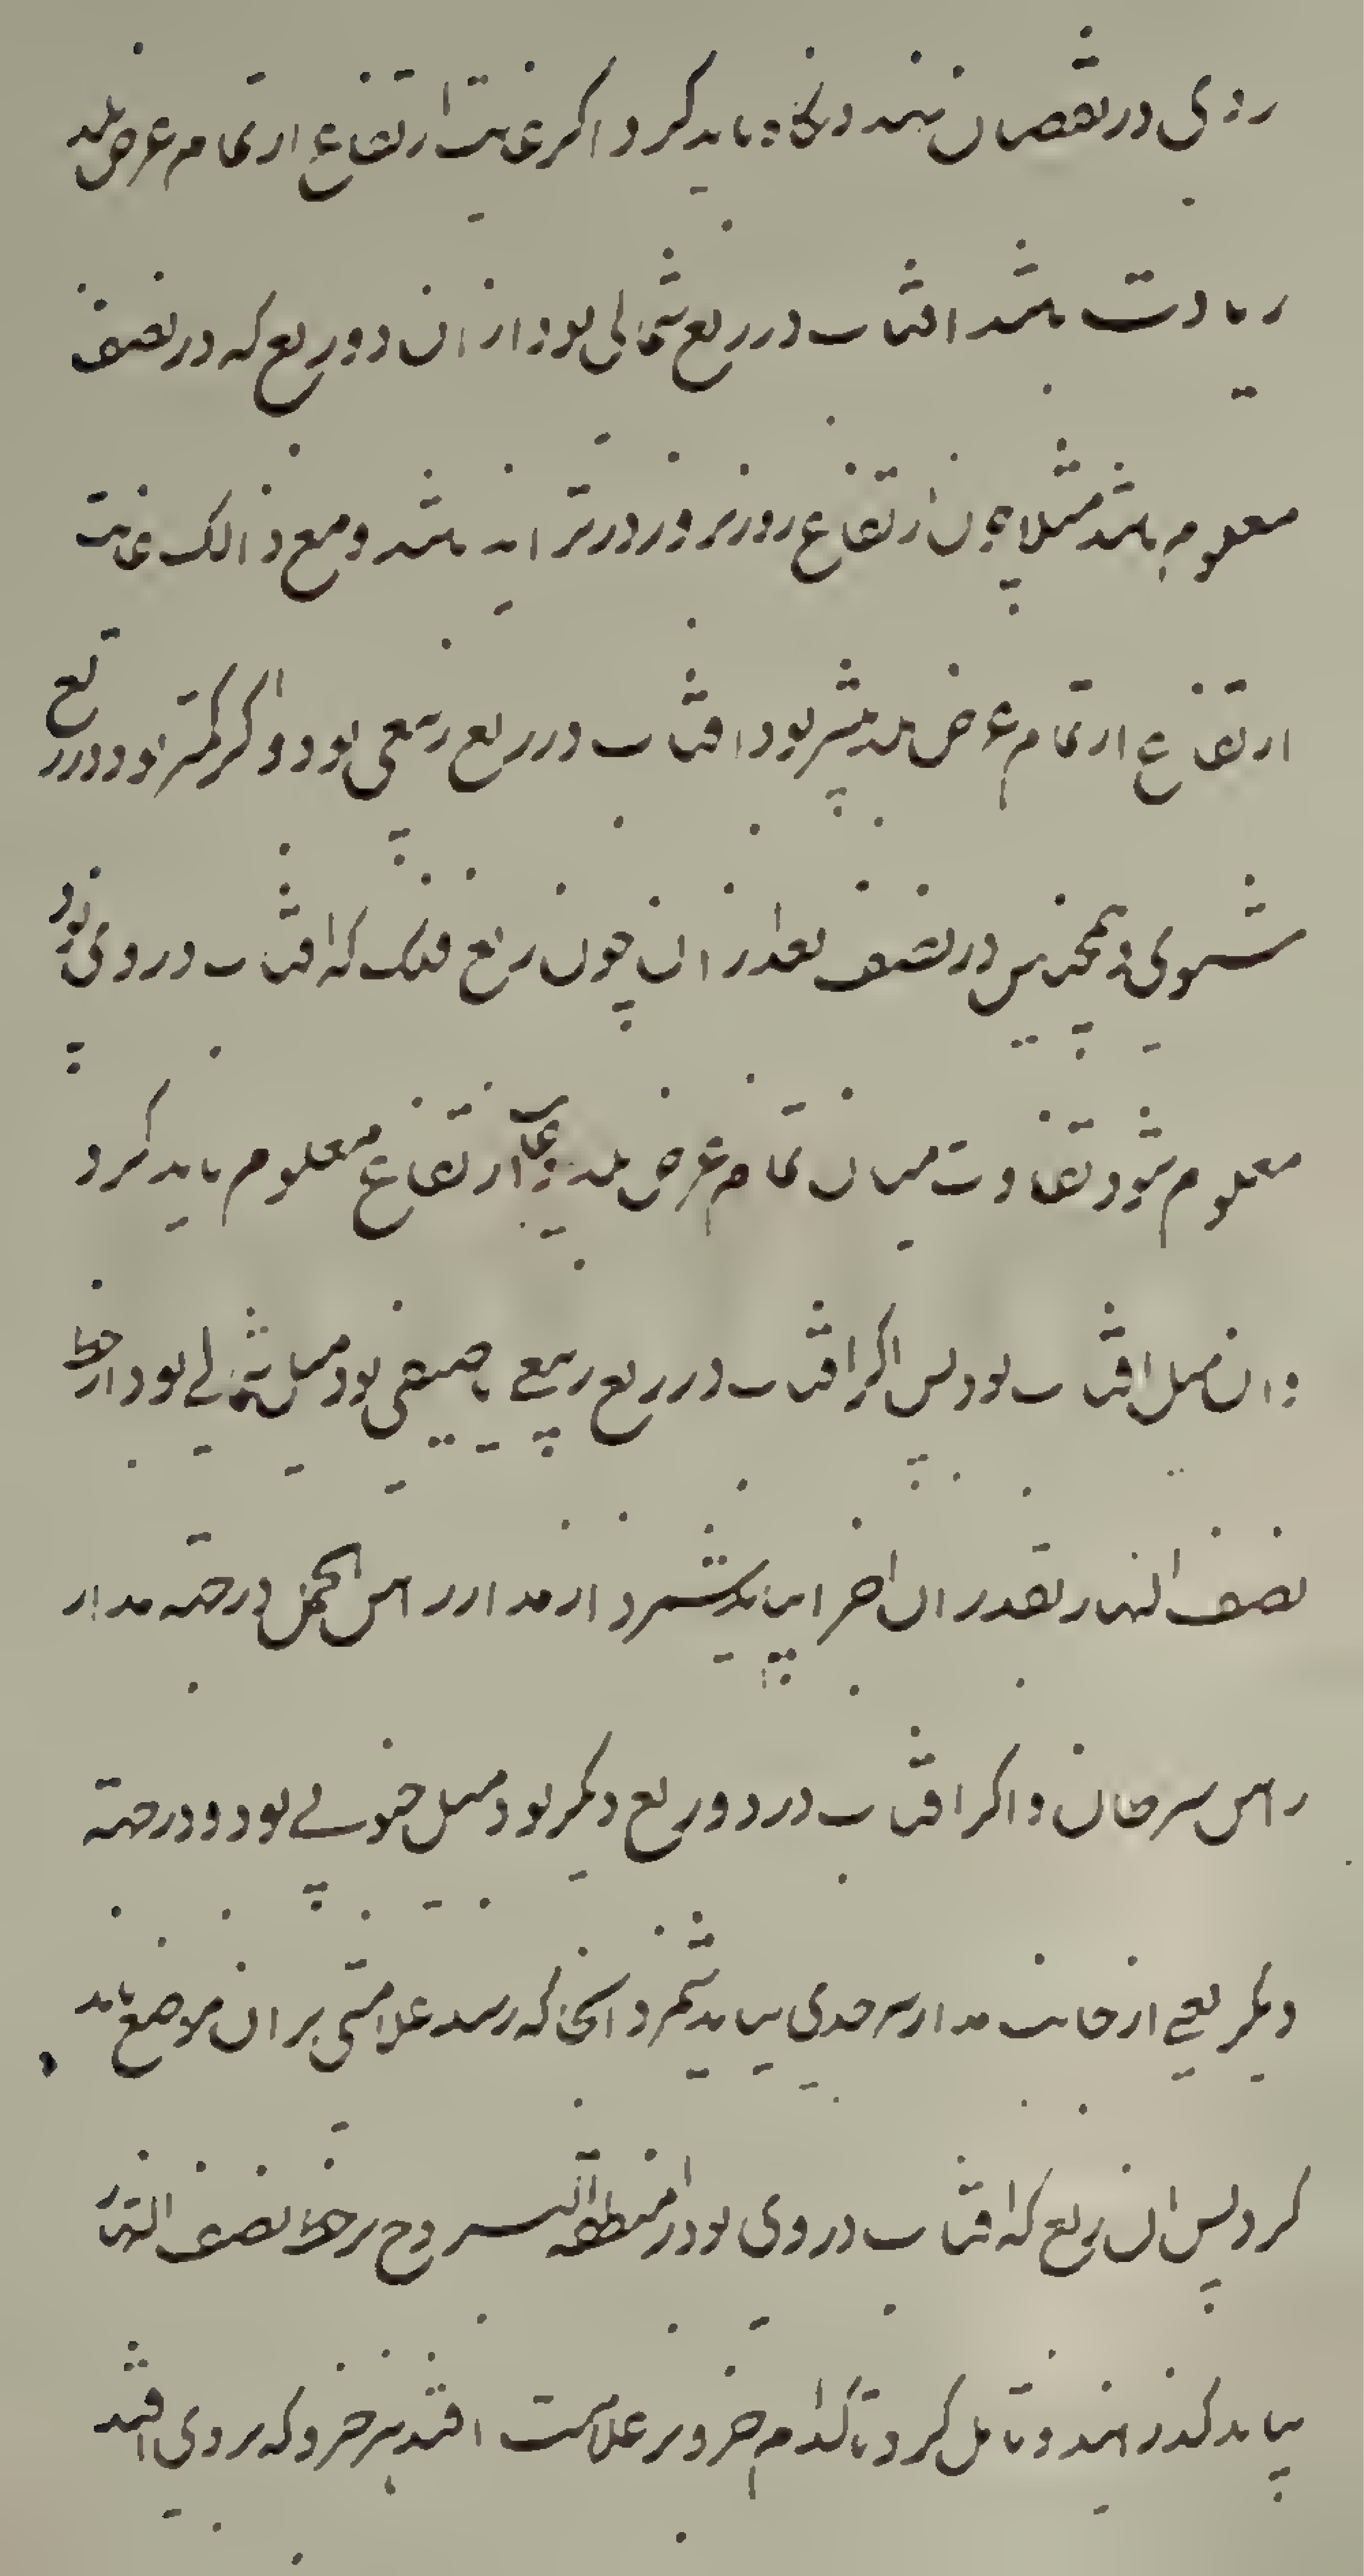 روی در نقصان نهد و نگاه باید کرد اگر غایت ارتفاع از تمام عرض بلد
زیادت باشد افتاب در ربع شمالی بود از ان دو ربع که در نصف
معلوم باشد مثلا چون ارتفاع روز بروز در تزاید باشد و مع ذالک غایت
ارتفاع از تمام عرض بلد بیشتر بود افتاب در ربع ربیعی بود و اگر کمتر بود در ربع
شتوی و همچنین در نصف بعد از ان چون ربع فلک که افتاب در وی بود
معلوم شود تفاوت میان تمام عرض بلد و غایت ارتفاع معلوم باید کرد
و ان میل افتاب بود پس اگر افتاب در ربع ربیعی یا صیفی بود میل شمالی بود از خط
نصف النهار بقدر ان اجزا بباید شمرد از مدار راس الحمل در جهة مدار
راس سرطان و اگر افتاب در دو ربع دیگر بود میل جنوبی بود و در جهة
دیگر یعنی از جانب مدار سر جدی بباید شمرد انجا که رسد علامتی بر ان موضع باید
کرد پس ان ربع که افتاب در وی بود از منطقة البروج بر خط نصف النهار
بباید گذرانید و تامل کرد تا کدام جزو بر علامت افتد هر جزو که بر وی افتد